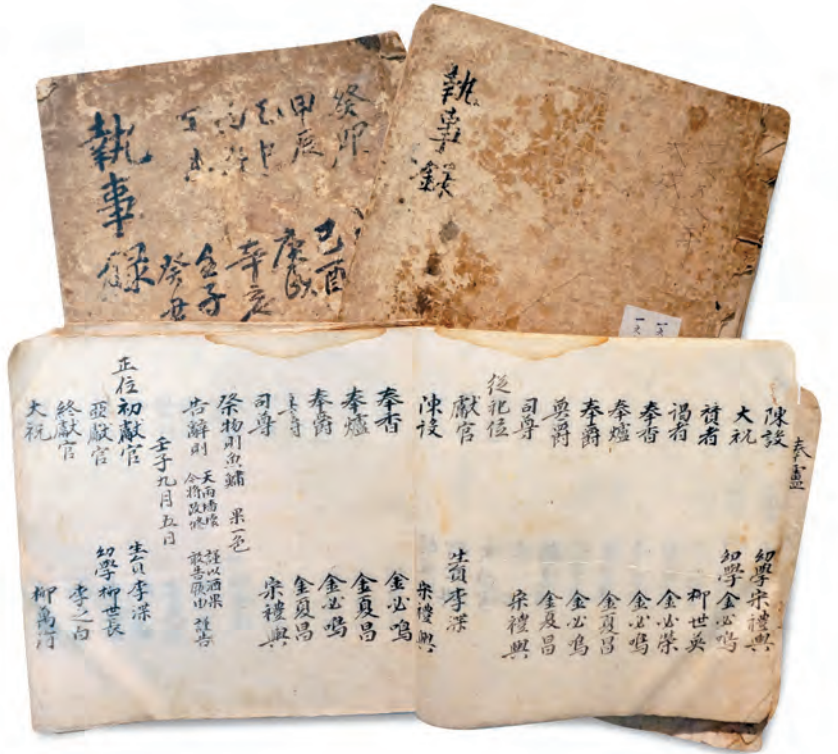 執事錄
癸卯
甲辰
己酉
庚戌
辛亥
壬子
癸丑
執事錄
陳設 幼學宋禮興
大祝 幼學金必鳴
賛者 柳世英
謁者 金必榮
奉香 金必鳴
奉爐 金夏昌
奉爵 金必鳴
奠爵 金夏昌
司尊 宋禮興
從祀位
獻官 生員李深
陳設 宋禮興
奉香 金必鳴
奉爐 金夏昌
奉爵 金必鳴
金夏昌
司尊 宋禮興
祭物則魚鱐 果一色
告辭則 天雨墻壞 今將改修 謹以酒果 敢告厥由 謹告
壬子九月五日
正位初獻官 生員李深
亞獻官 幼學柳世長
終獻官 李之白
大祝 柳萬河